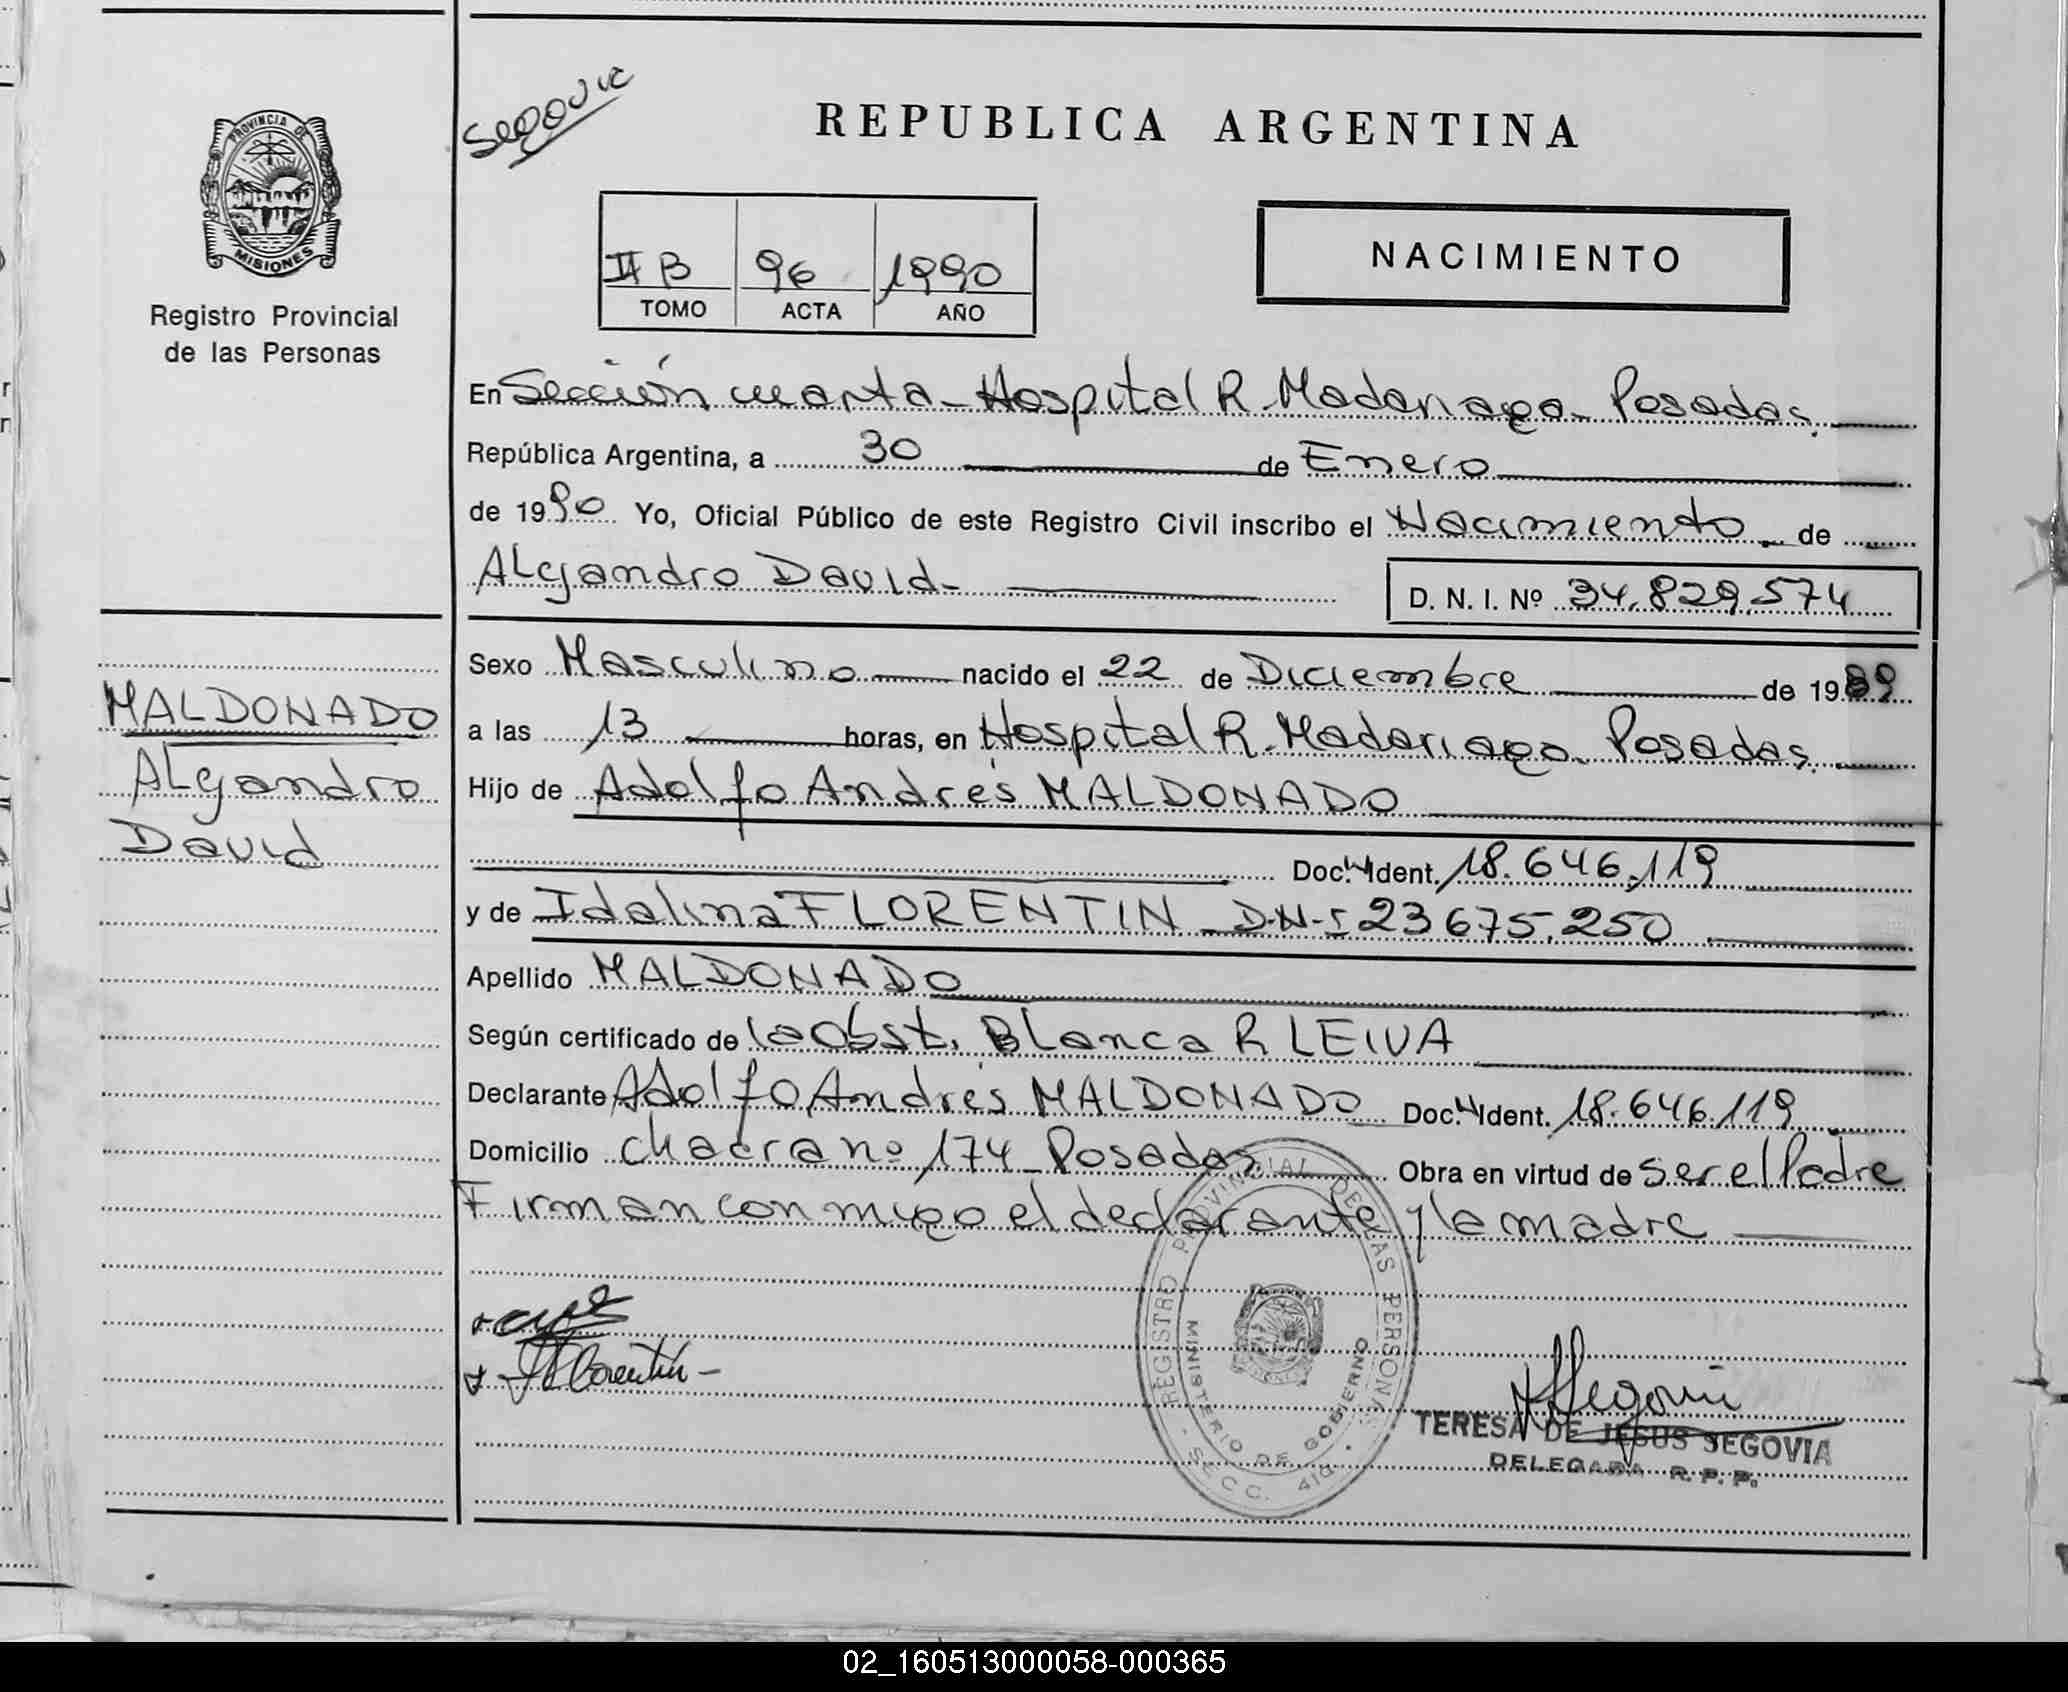 Segovia
REPUBLICA ARGENTINA
PROVINCIA DE
MISIONES
Registro Provincial
de las Personas
II B 96 1990
TOMO ACTA AÑO
NACIMIENTO
En Sección cuarta - Hospital R. Madariaga - Posadas.
República Argentina, a 30 de Enero
de 1990 Yo, Oficial Público de este Registro Civil inscribo el Nacimiento de
Alejandro David- D. N. I. Nº 34.829.574
Sexo Masculino nacido el 22 de Diciembre de 1989
MALDONADO
Alejandro
David
a las 13 horas, en Hospital R. Madariaga - Posadas.
Hijo de Adolfo Andrés MALDONADO
Doc. Ident. 18.646.119
y de Idalina FLORENTIN - D.N.I 23675.250
Apellido MALDONADO
Según certificado de la Obst. Blanca R LEIVA
Declarante Adolfo Andrés MALDONADO Doc. Ident. 18.646.119
Domicilio chacra nº 174 - Posadas Obra en virtud de ser el Padre
Firman conmigo el declarante y la madre
Florentín -
REGISTRO PROVINCIAL DE LAS PERSONAS
MINISTERIO DE GOBIERNO
SECC. 4ta.
Segovia
TERESA DE JESUS SEGOVIA
DELEGADA R. P. P.
02_160513000058-000365